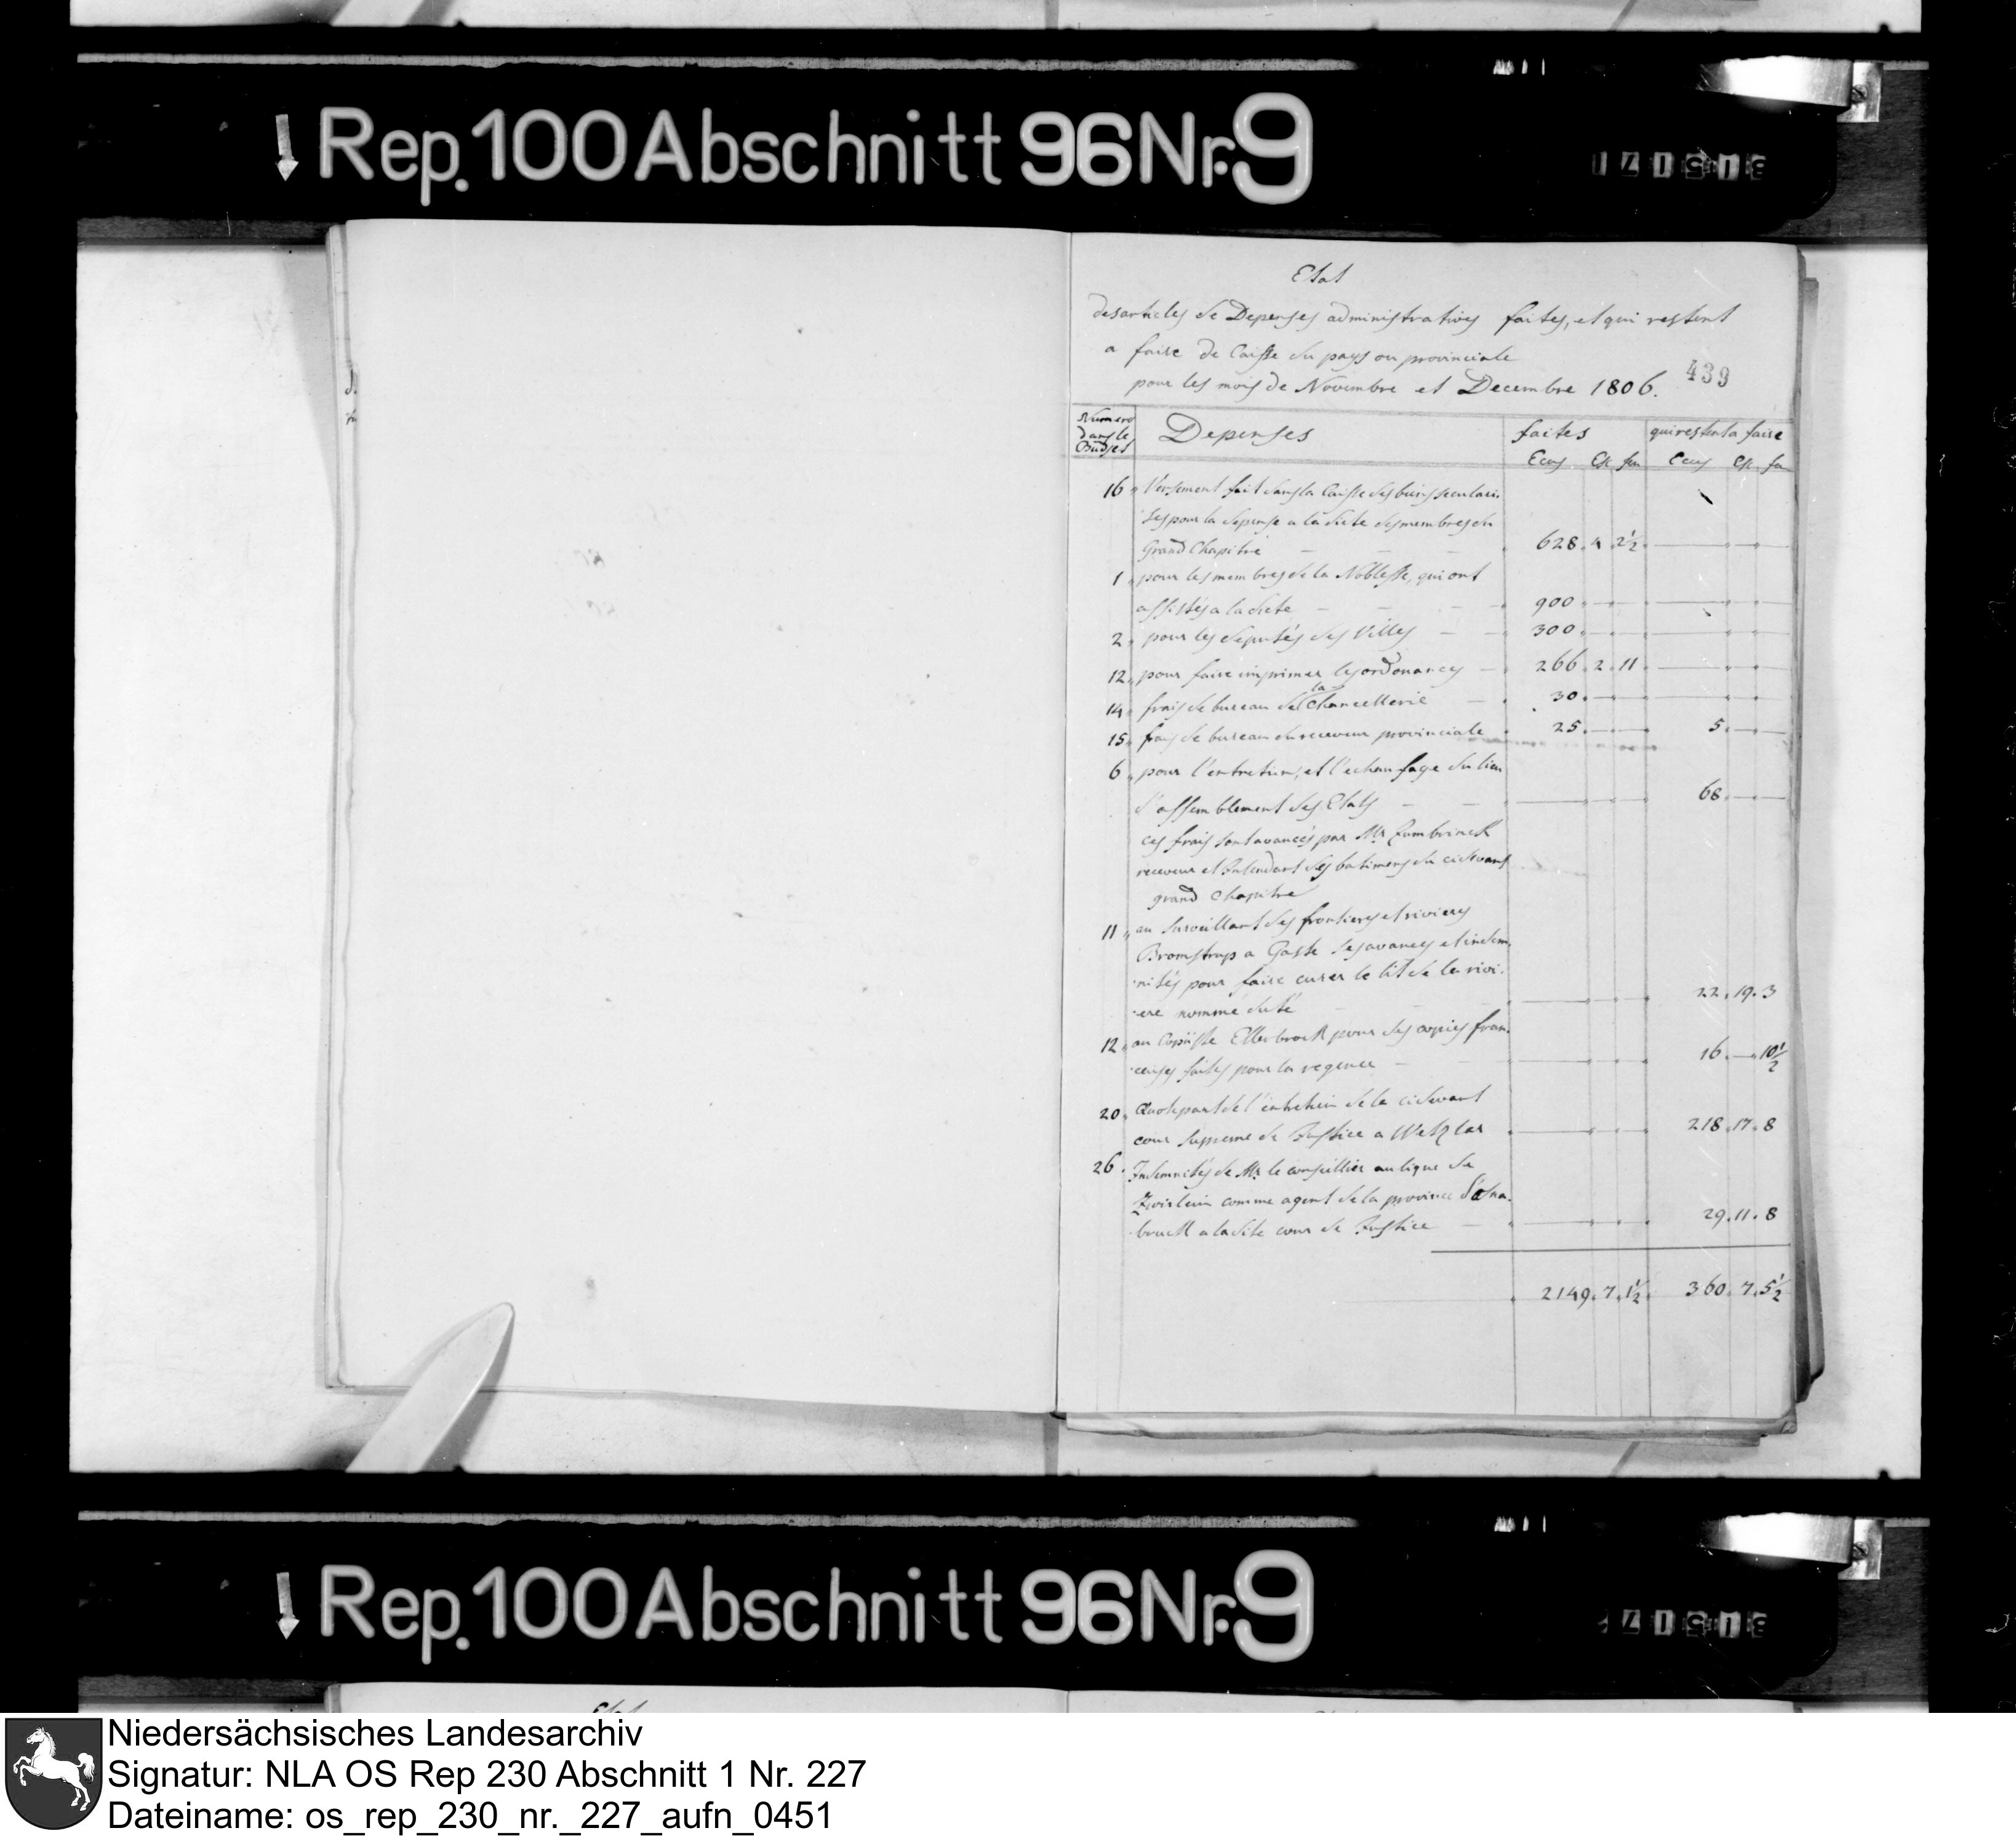 Rep.100 Abschnitt 96 Nr. 9
Etat
des articles de Depenses administratives faites, et qui restent
a faire de Caisse du pays ou provinciale
pour les mois de Novembre et Decembre 1806.
439
Numero dans le Budjet
Depenses
faites
qui restent a faire
Ecus
Ecus
16 Versement fait dans la Caisse des biens secularis
ses pour la depense a la diete des membres du
Grand Chapitre 628. 4. 2½
1 pour les membres de la Noblesse, qui ont
assistés a la diete 900
2 pour les deputés des Villes 300
12 pour faire imprimer les ordonances 266. 2. 11
14 frais de bureau de la Chancellerie 30
15 frais de bureau du receveur provinciale 25 5
6 pour l'entretien, et l'echaufage du lieu
d'assemblement des Etats 68
ces frais sont avancés par Mr Zumbrinck
receveur et Intendant des batimens du cidevant
grand Chapitre
11 au surveillant des frontieres et rivieres
Bromstrup a Gaste ses avances et indem.
nités pour faire curer le lit de la rivi.
ere nommé dute 22. 19. 3
12 au Copiiste Ellerbrock pour des copies fran.
ceuses faites pour la regence 16 10½
20 Quotepart de l'entretien de la cidevant
cour supreme de Justice a Wetzlar 218. 17. 8
26 Indemnités de Mr le conseillier aulique de
Zwirlein comme agent de la province d'Osna.
bruck a ladite cour de Justice 29. 11. 8
2149. 7. 1½ 360. 7. 5½
Rep.100 Abschnitt 96 Nr. 9
Niedersächsisches Landesarchiv
Signatur: NLA OS Rep 230 Abschnitt 1 Nr. 227
Dateiname: os_rep_230_nr._227_aufn_0451